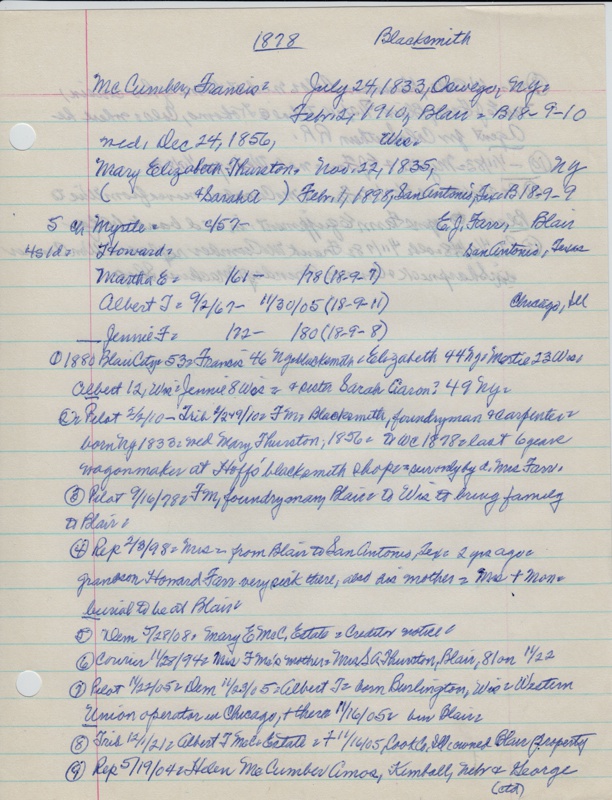 1878 Blacksmith
McCumber, Francis = July 24, 1833, Oswego, Ny =
Feb 2, 1910, Blair = B18-9-10
md, Dec 24, 1856, Wis =
Mary Elizabeth Thurston = Nov. 22, 1835, Ny
( & Sarah A ) Feb 1, 1898, San Antonio, Tex = B18-9-9
5 ch, Myrtle = c/57- E.J. Farr, - Blair
4s1d = Howard = San Antonio, Texas
Martha E = /61- /78 (18-9-7)
Albert T = 9/2/67- 11/30/05 (18-9-11) Chicago, Ill
Jennie F = /72- /80 (18-9-8)
① 1880 Blair City = 53 = Francis 46 Ny = blacksmith = Elizabeth 44 Ny = 23 Wis,
Albert 12, Wis = Jennie 8 Wis = & sister Sarah ? 49 Ny =
② Pilot 2/2/10 - Trib = F M = Blacksmith, foundryman & carpenter =
born Ny 1833 = md Mary Thurston, 1856 = to WC 1878 = last 6 years
wagonmaker at Hoffs' blacksmith shop = surv only by d. Mrs Farr.
③ Pilot 9/16/78 = F M, foundryman, Blair = to Wis to bring family
to Blair =
④ Rep 2/3/98 = Mrs = from Blair to San Antonio, Tex = 2 yrs ago =
grandson Howard Farr very sick there, also his mother = Mrs + Mon =
burial to be at Blair =
⑤ Dem 5/28/08 = Mary E McC, Estate = Creditor notice =
⑥ Courier 11/28/94 = Mrs F Mc's mother = Mrs S A Thurston, Blair, 81 on 11/22
⑦ Pilot 11/22/05 = Dem 11/23/05 = Albert T = born Burlington, Wis = Western
Union operator in Chicago, + there 11/16/05 = bur Blair =
⑧ Trib 12/1/21 = Albert T McC = Estate = + 11/16/05, Cook Co, Ill; owned Blair property
⑨ Rep 5/19/04 = Helen McCumber Amos, Kimball, Nebr & George